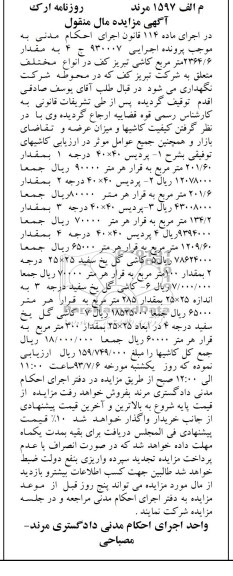 م الف ۱۵۹۷ مرند روزنامه ارک
آگهی مزایده مال منقول
در اجرای ماده ۱۱۴ قانون اجرای احکام مدنی به
موجب پرونده اجرایی ۹۳۰۰۰۷ ج ۴ به مقدار
۲۳۶۴/۶متر مربع کاشی تبریز کف در انواع مختلف
متعلق به شرکت تبریز کف که در محوطه شرکت
نگهداری می شود در قبال طلب آقای یوسف صادقی
اقدم توقیف گردیده پس از طی تشریفات قانونی به
کارشناس رسمی قوه قضاییه ارجاع گردیده وی با در
نظر گرفتن کیفیت کاشیها و میزان عرضه و تقاضای
بازار و همچنین جمیع عوامل موثر در ارزیابی کاشیهای
توقیفی بشرح ۱- پردیس ۴۰×۴۰ درجه ۱ بمقدار
۲۰۱/۶۰ متر مربع به قرار هر متر ۹۰۰۰۰ ریال جمعا
۱۲۰۷۸۰۰۰ ریال ۲- پردیس ۴۰×۴۰ درجه ۲ بمقدار
۲۰۱/۶ متر مربع به قرار هر متر ۸۰۰۰۰ریال جمعا
۴۳۰۰۸۰۰۰ ریال ۳-پردیس ۴۰×۴۰ درجه ۳ بمقدار
۱۳۴/۲ متر مربع به قرار هر متر ۷۰۰۰۰ ریال جمعا
۹۳۹۴۰۰۰ریال ۴ پردیس ۴۰×۴۰ درجه ۴ بمقدار
۱۲۰۹/۶۰ متر مربع به قرار هر متر ۶۵۰۰۰ ریال جمعا
۷۸۶۲۴۰۰۰ ریال ۵- کاشی گل یخ سفید ۲۵×۲۵ درجه
۲ بمقدار متر مربع به قرار هر متر ۷۰۰۰۰ ریال جمعا
۷/۰۰۰/۰۰۰ ریال ۶- کاشی گل یخ سفید درجه ۳ به
اندازه ۲۵×۲۵ بمقدار ۲۸۵ متر مربع به قرار هر متر
۶۵۰۰۰ ریال جمعا ۱۸۵۲۵۰۰۰ ریال ۷ کاشی گل یخ
سفید درجه ۴ در ابعاد ۲۵×۲۵ بمقدار ۳۰۰ متر مربع به
قرار هر متر ۶۰۰۰۰ ریال جمعا ۱۸/۰۰۰/۰۰۰ ریال
جمع کل کاشیها را مبلغ ۱۵۹/۷۴۹/۰۰۰ ریال ارزیابی
نموده که روز یکشنبه مورخه ۹۳/۷/۶ ساعت ۱۱:۰۰
الی ۱۲:۰۰ صبح از طریق مزایده در دفتر اجرای احکام
مدنی دادگستری مرند بفروش خواهد رفت مزایده از
قیمت پایه شروع به بالاترین و آخرین قیمت پیشنهادی
از جانب خریدار واگذار خواهد شد ۱۰٪ قیمت
پیشنهادی فی المجلس دریافت برای بقیه بمدت یکماه
مهلت داده خواهد شد که در صورت انصراف یا عدم
پرداخت مزایده تجدید سپرده واریزی بنفع دولت ضبط
خواهد شد طالبین جهت کسب اطلاعات بیشتر و بازدید
از مال مورد مزایده می تواند پنج روز قبل از موعد
مزایده به دفتر اجرای احکام مدنی مراجعه و در جلسه
مزایده شرکت نمایند .
واحد اجرای احکام مدنی دادگستری مرند-
مصباحی